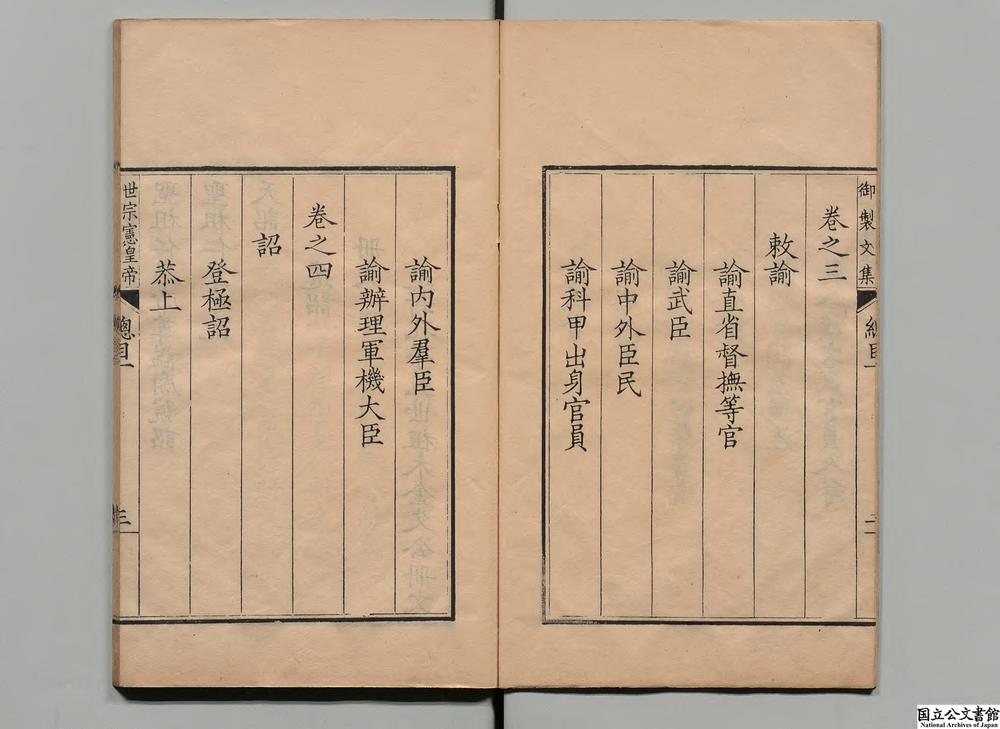 御製文集
總目
二
卷之三
敕諭
諭直省督撫等官
諭武臣
諭中外臣民
諭科甲出身官員
諭内外羣臣
諭辦理軍機大臣
卷之四
詔
登極詔
恭上
世宗憲皇帝
總目
三
国立公文書館
National Archives of Japan